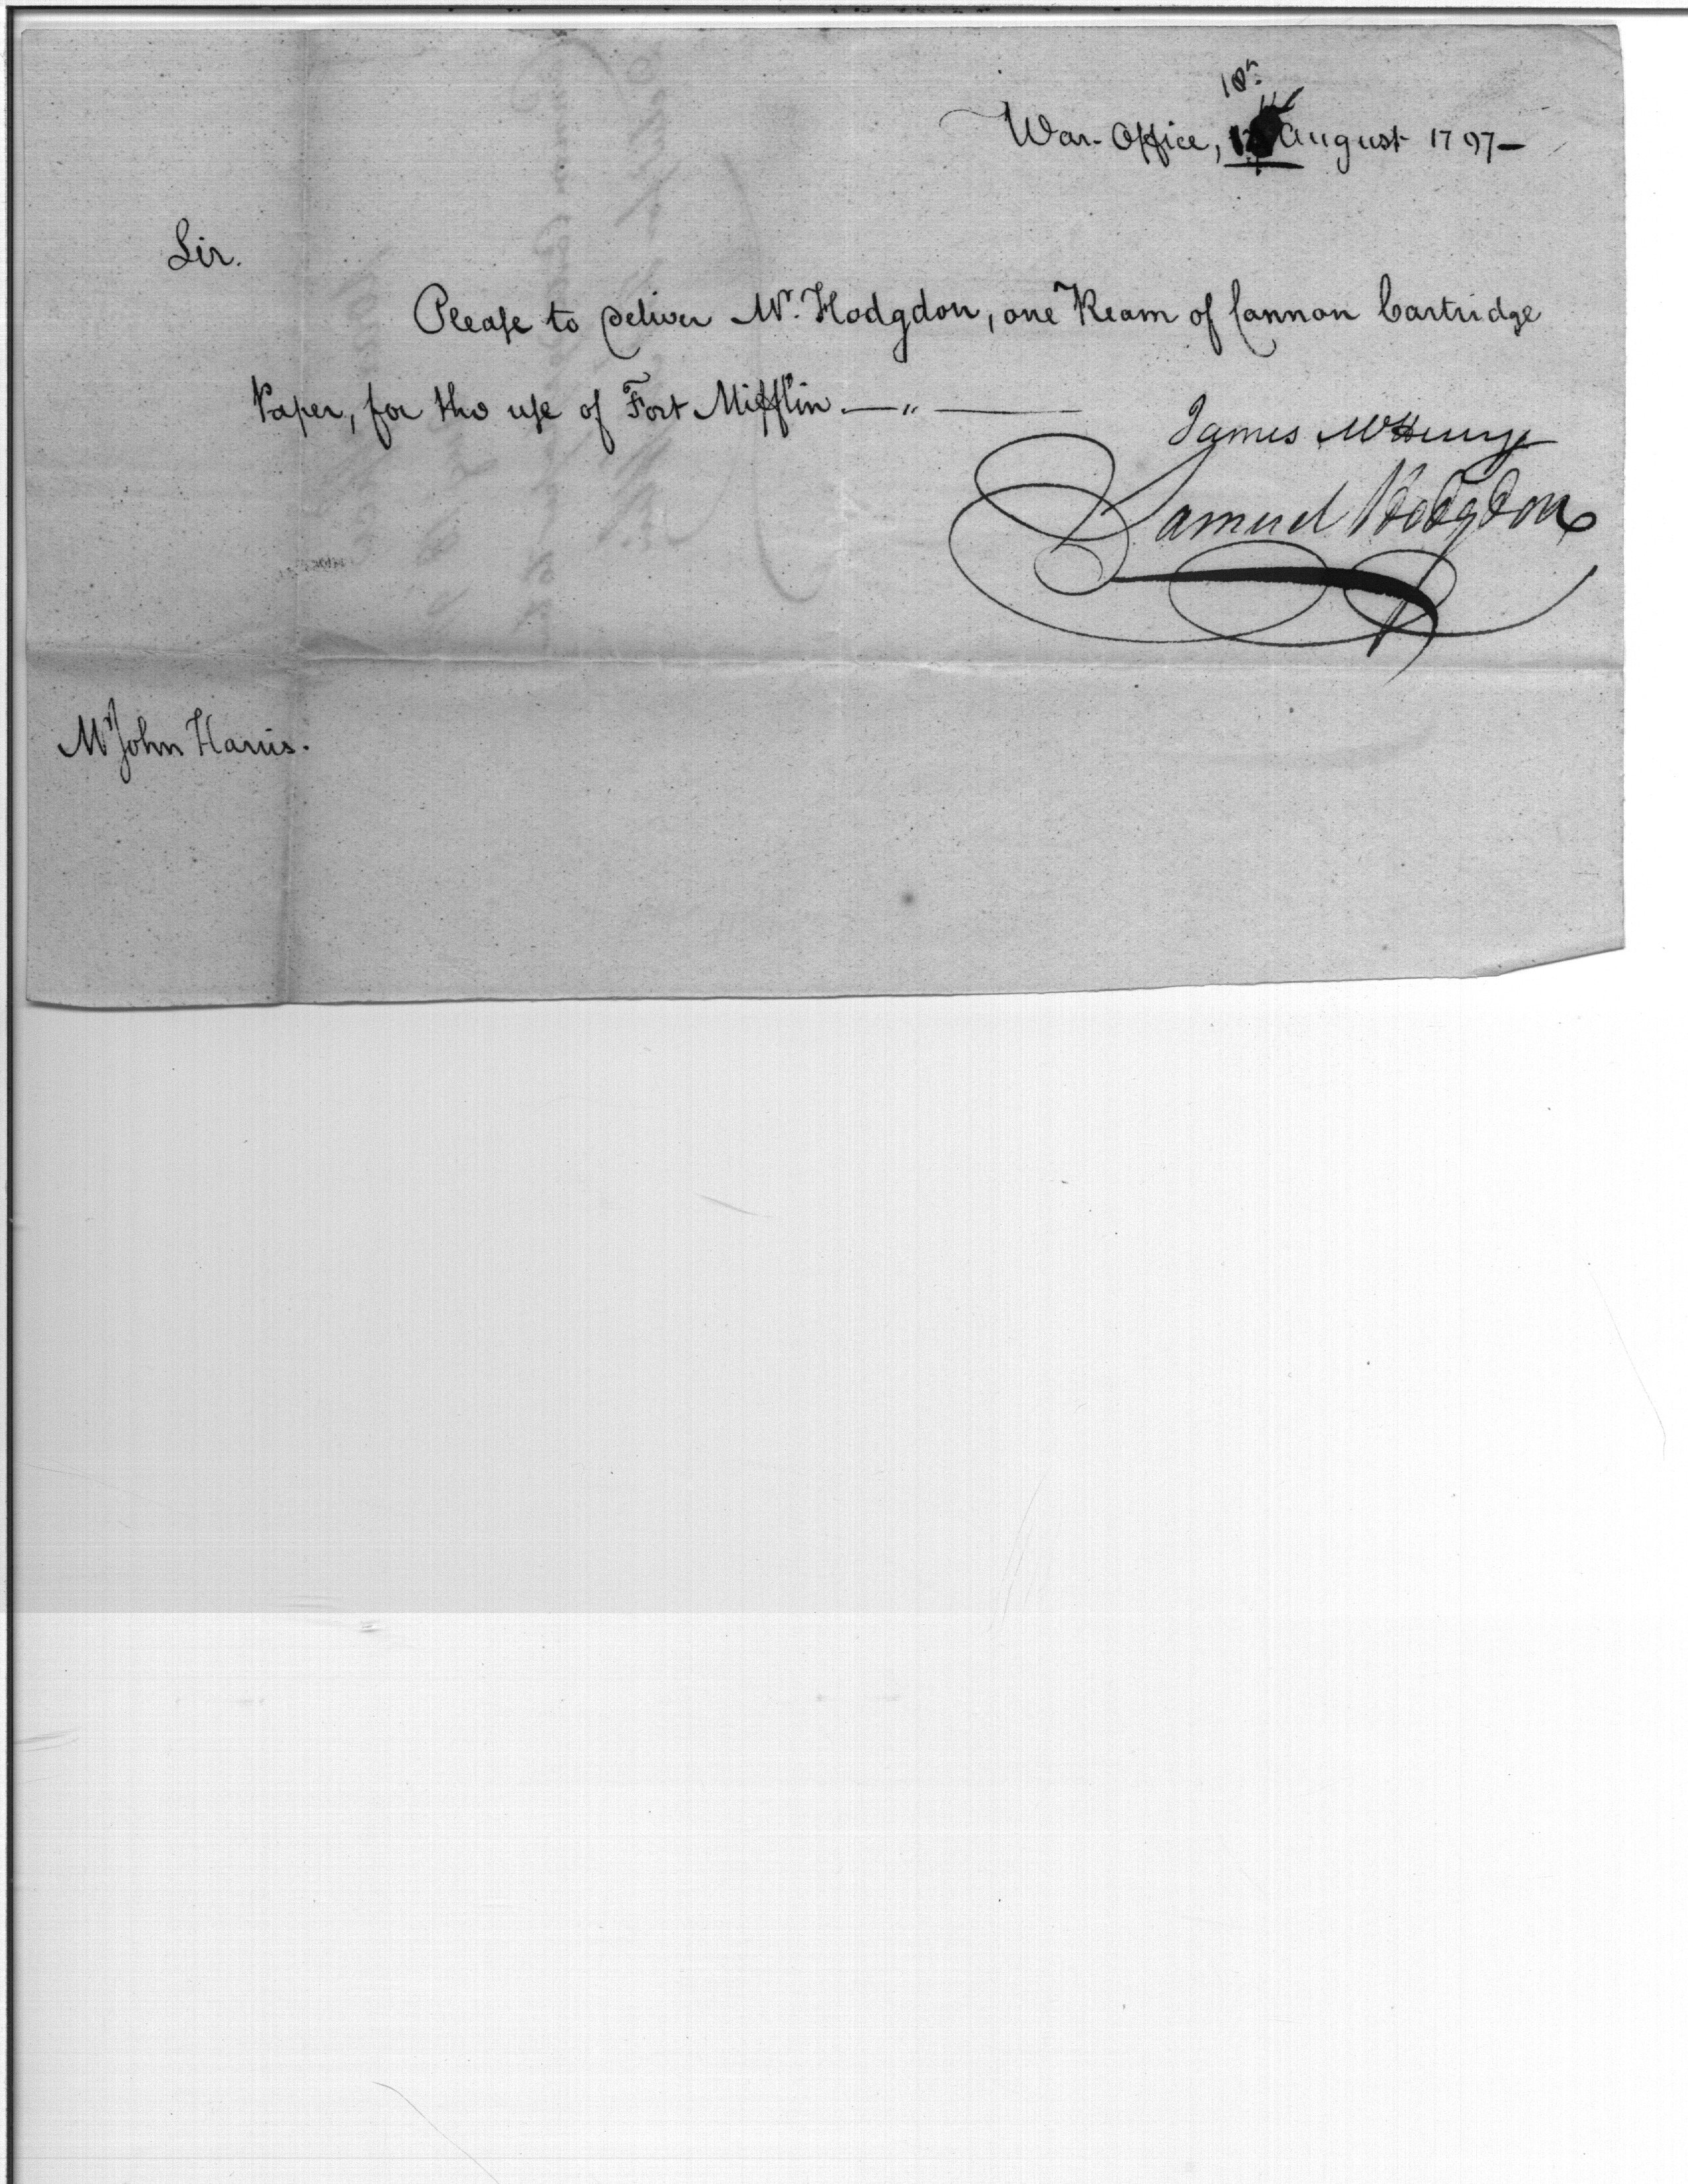 18th
War Office, August 1797—
Sir.
Please to deliver Mr. Hodgdon, one Ream of Cannon Cartridge
Paper, for the use of Fort Mifflin.—"——
James McHenry
Samuel Hodgdon
Mr John Harris.